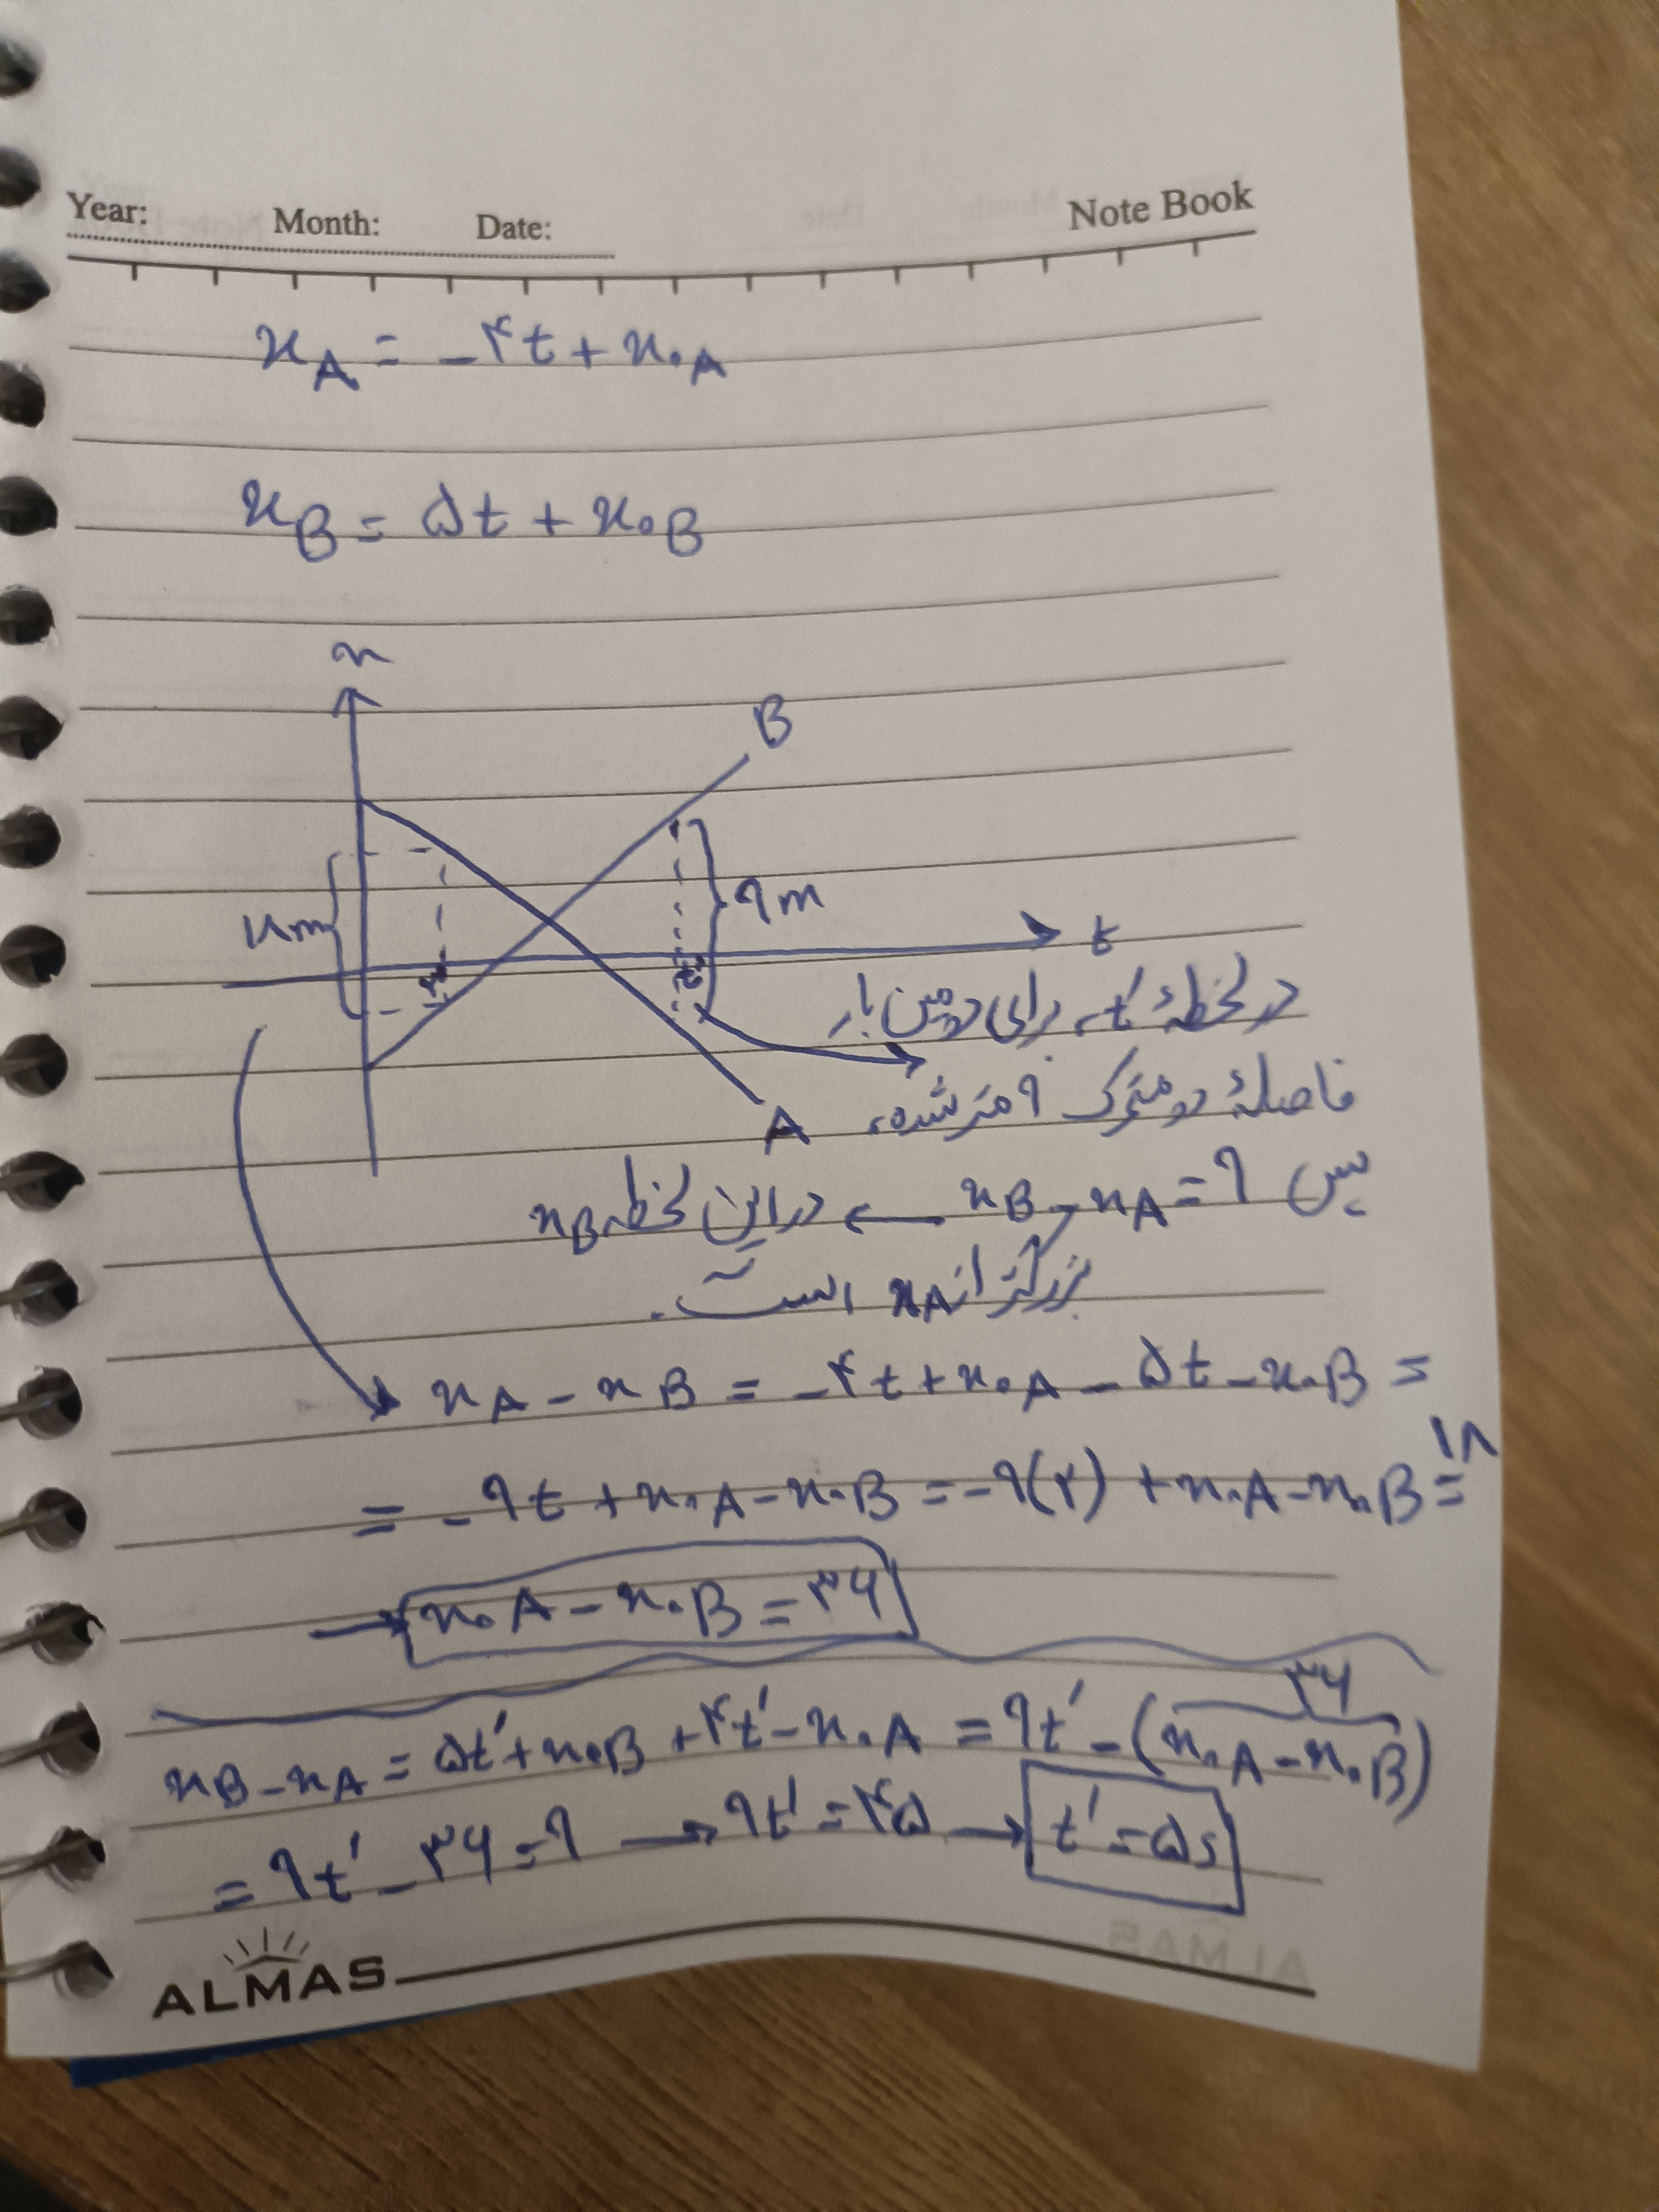 Year: Month: Date: Note Book
x_A = -۴t + x₀A
x_B = ۵t + x₀B
x
B
۱۸m
۹m
t
۲
t'
در لحظهٔ t'، برای دومین بار
فاصلهٔ دو متحرک ۹ متر شده،
A
پس x_B - x_A = ۹ ← در این لحظه x_B
بزرگتر از x_A است.
x_A - x_B = -۴t + x₀A - ۵t - x₀B =
= -۹t + x₀A - x₀B = -۹(۲) + x₀A - x₀B = ۱۸
→ x₀A - x₀B = ۳۶
x_B - x_A = ۵t' + x₀B + ۴t' - x₀A = ۹t' - (x₀A - x₀B) ۳۶
= ۹t' - ۳۶ = ۹ → ۹t' = ۴۵ → t' = ۵s
ALMAS